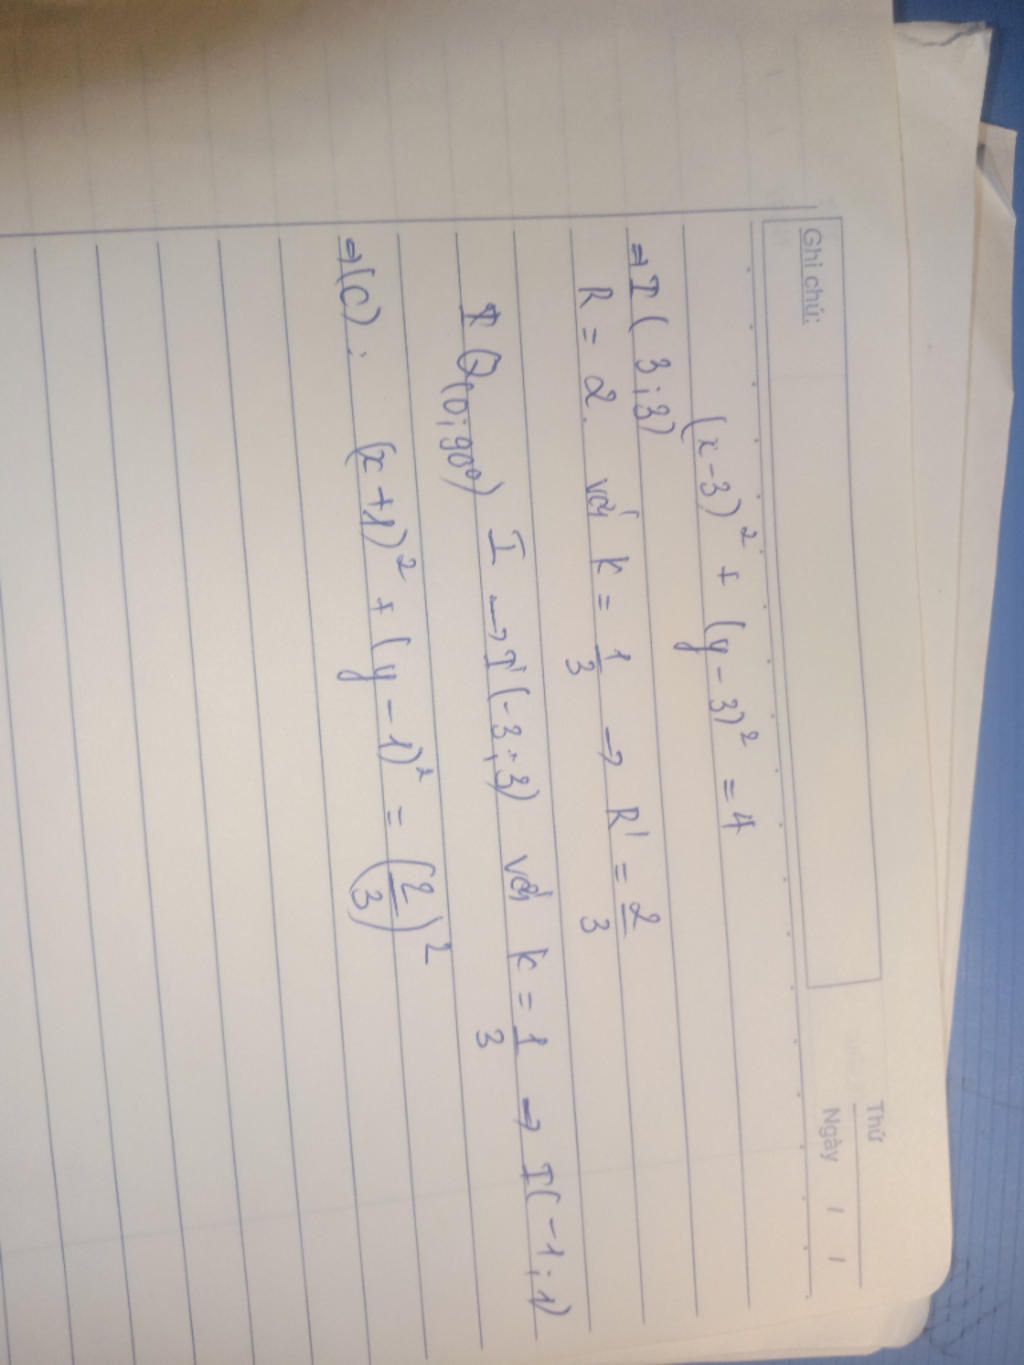 Ghi chú:
Thứ
Ngày / /
(x-3)² + (y-3)² = 4
⇒ I (3;3)
R = 2. với k = 1/3 → R' = 2/3
Q(0;90°) I → I'(-3;3) với k = 1/3 → I(-1;1)
⇒ (C): (x+1)² + (y-1)² = (2/3)²